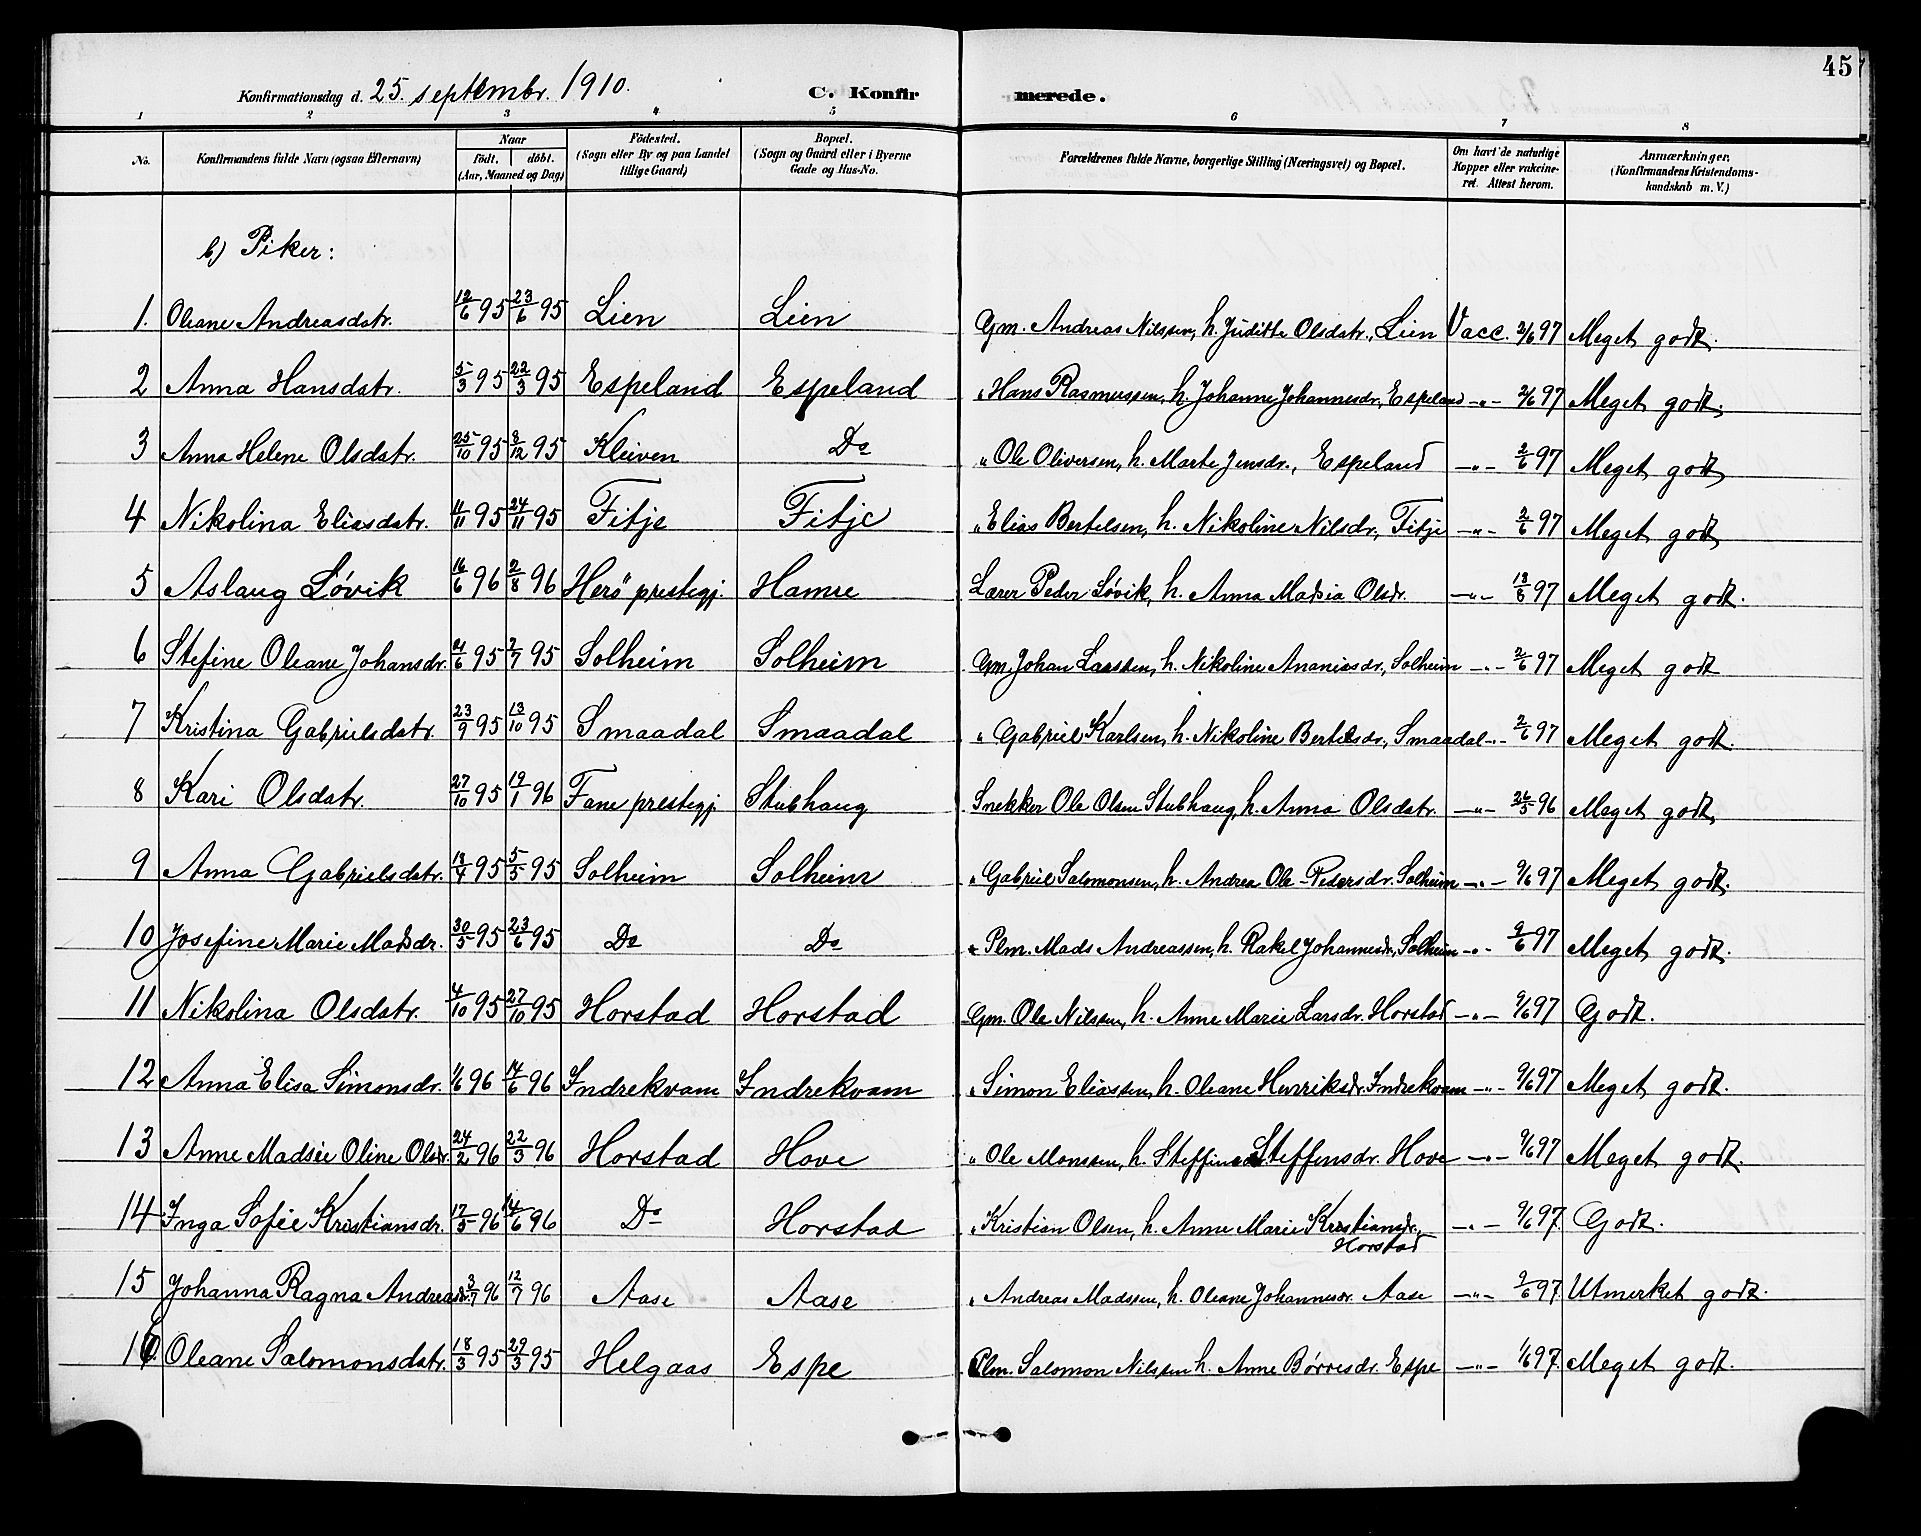 45
Konfirmationsdag d. 25. septembr. 1910. C. Konfir merede.
1 2 3 4 5 6 7 8
No. Konfirmandens fulde Navn (ogsaa Efternavn) Naar födt. döbt. (Aar, Maaned og Dag) Födested. (Sogn eller By og paa Landet tillige Gaard) Bopæl. (Sogn og Gaard eller i Byerne Gade og Hus-No. Forældrenes fulde Navne, borgerlige Stilling (Næringsvei) og Bopæl. Om havt de naturlige Kopper eller vakcineret. Attest herom. Anmærkninger. (Konfirmandens Kristendomskundskab m. V.)
b) Piker:
1. Oleane Andreasdatr. 12/6 95 23/6 95 Lien Lien Gm. Andreas Nilssen, h. Juditte Olsdatr., Lien Vacc. 2/6 97 Meget godt.
2 Anna Hansdatr. 5/3 95 22/3 95 Espeland Espeland " Hans Rasmussen, h. Johanne Johannesdr., Espeland -"- 2/6 97 Meget godt.
3 Anna Helene Olsdatr. 25/10 95 8/12 95 Kleiven Do " Ole Oliversen, h. Marte Jensdr., Espeland -"- 2/6 97 Meget godt
4 Nikolina Eliasdatr. 11/11 95 24/11 95 Fitje Fitje " Elias Bertelsen, h. Nikoline Nilsdr., Fitje -"- 2/6 97 Meget godt
5 Aslaug Løvik 16/6 96 2/8 96 Herö prestegj. Hamre Lærer Peder Løvik, h. Anna Madsia Olsdr. -"- 97 Meget godt.
6 Stefine Oleane Johansdr. 95 2/7 95 Solheim Solheim Gm. Johan Larssen, h. Nikoline Ananiasdr., Solheim -"- 2/6 97 Meget godt
7 Kristina Gabrielsdatr. 23/9 95 13/10 95 Smaadal Smaadal " Gabriel Karlsen, h. Nikoline Bertelsdr., Smaadal -"- 2/6 97 Meget godt.
8 Kari Olsdatr. 27/10 95 19/1 96 Fane prestegj. Stubhaug Snekker Ole Olsen Stubhaug, h. Anna Olsdatr. -"- 26/5 96 Meget godt,
9 Anna Gabrielsdatr. 13/4 95 5/5 95 Solheim Solheim " Gabriel Salomonsen, h. Andrea Ole-Pedersdr. Solheim -"- 9/6 97 Meget godt.
10 Josefine Marie Madsdr. 30/5 95 23/6 95 Do Do " Plm. Mads Andreassen, h. Rakel Johannesdr., Solheim -"- 9/6 97 Meget godt.
11 Nikolina Olsdatr. 4/10 95 27/10 95 Horstad Horstad Gm. Ole Nilssen, h. Anne Marie Larsdr. Horstad -"- 9/6 97 Godt.
12 Anna Elisa Simonsdr. 1/6 96 14/6 96 Indrekvam Indrekvam " Simon Eliassen, h. Oleane Henriksdr. Indrekvam -"- 9/6 97 Meget godt.
13 Anne Madsie Oline Olsdr. 24/2 96 22/3 96 Horstad Hove " Ole Monssen, h. Steffine Steffensdr. Hove -"- 9/6 97 Meget godt.
14 Inga Sofie Kristiansdr. 17/5 96 14/6 96 Do Horstad " Kristian Olsen, h. Anne Marie Kristiansdr., Horstad -"- 9/6 97. Godt.
15 Johanna Ragna Andreasdr. 3/7 96 12/7 96 Aase Aase " Andreas Madssen, h. Oleane Johannesdr. Aase -"- 2/6 97 Utmerket godt.
16. Oleane Salomonsdatr. 18/3 95 29/3 95 Helgaas Espe Plm. Salomon Nilssen h. Anne Børresdr. Espe -"- 1/6 97. Meget godt.